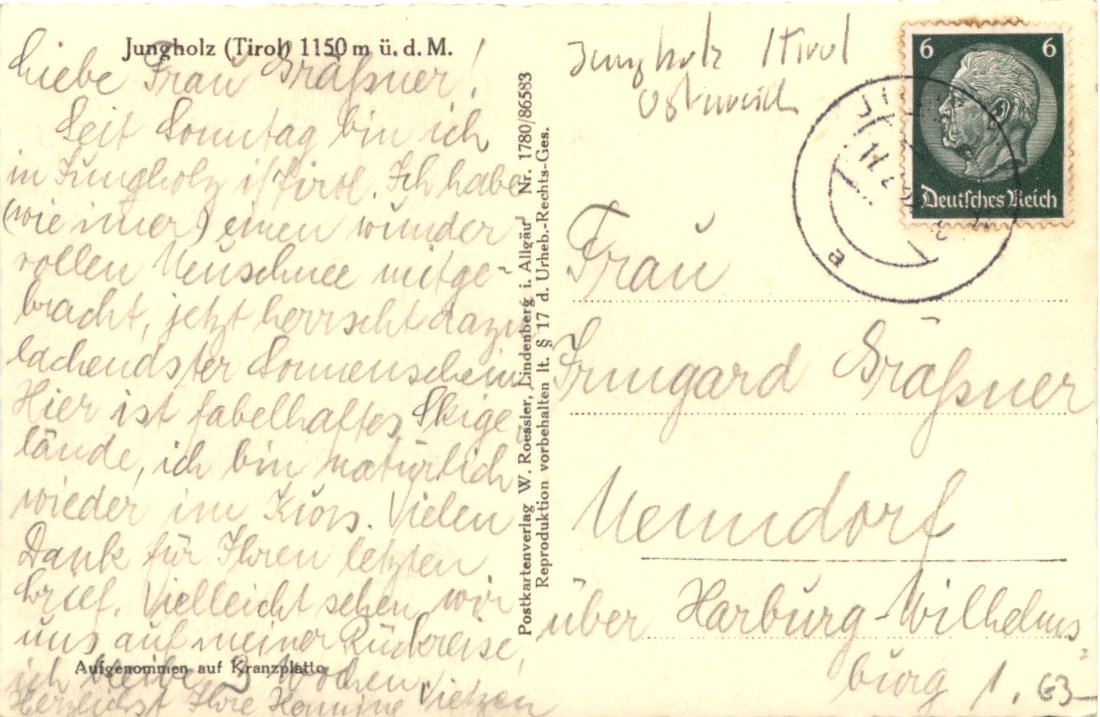 Jungholz (Tirol) 1150 m ü. d. M.
Liebe Frau Gräßner!
Seit Sonntag bin ich
in Jungholz i/Tirol. Ich habe
(wie immer) einen wunder
vollen Neuschnee mitge-
bracht, jetzt herrscht dazu
lachendster Sonnenschein.
Hier ist fabelhaftes Skige
lände, ich bin natürlich
wieder im Kurs. Vielen
Dank für Ihren letzten
Brief. Vielleicht sehen wir
uns auf meiner Rückreise,
Aufgenommen auf Kranzplatte
ich bleibe 3 Wochen.
Herzlichst Ihre
Postkartenverlag W. Roessler, Lindenberg i. Allgäu Nr. 1780/86583
Reproduktion vorbehalten lt. § 17 d. Urheb.-Rechts-Ges.
Jungholz /Tirol
Österreich
6 6
Deutsches Reich
Frau
Irmgard Gräßner
Nenndorf
über Harburg-Wilhelms
burg 1. 63-